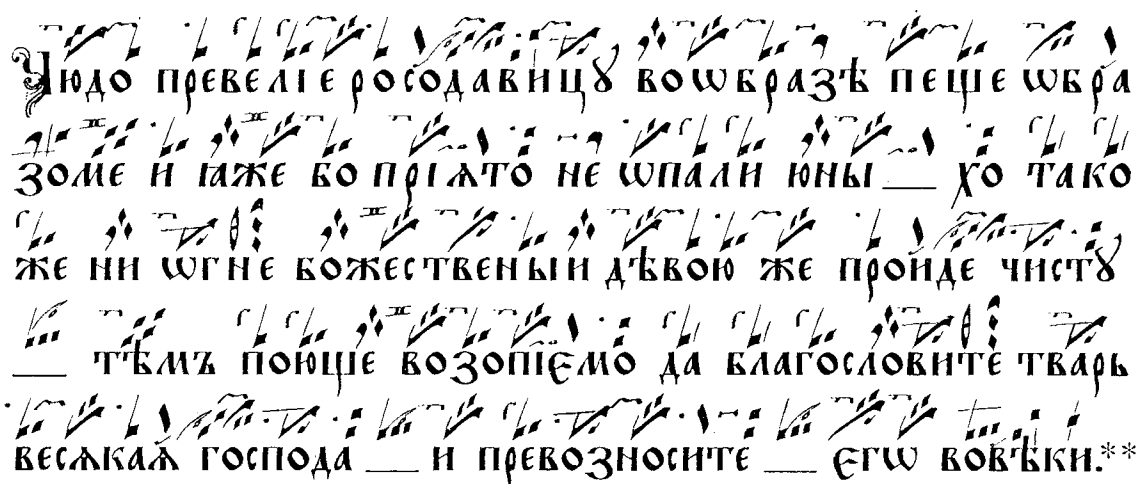 Чюдо превеліе росодавицꙋ воѡбразѣ пеще ѡбра
зоме и ꙗже бо прїѧто не ѡпали юны хо тако
же ни ѡгне божественыи дѣвою же пройде чистꙋ
тѣмъ поюще возопїемо да благословите тварь
весѧкаѧ господа и превозносите єгѡ вовѣки.**